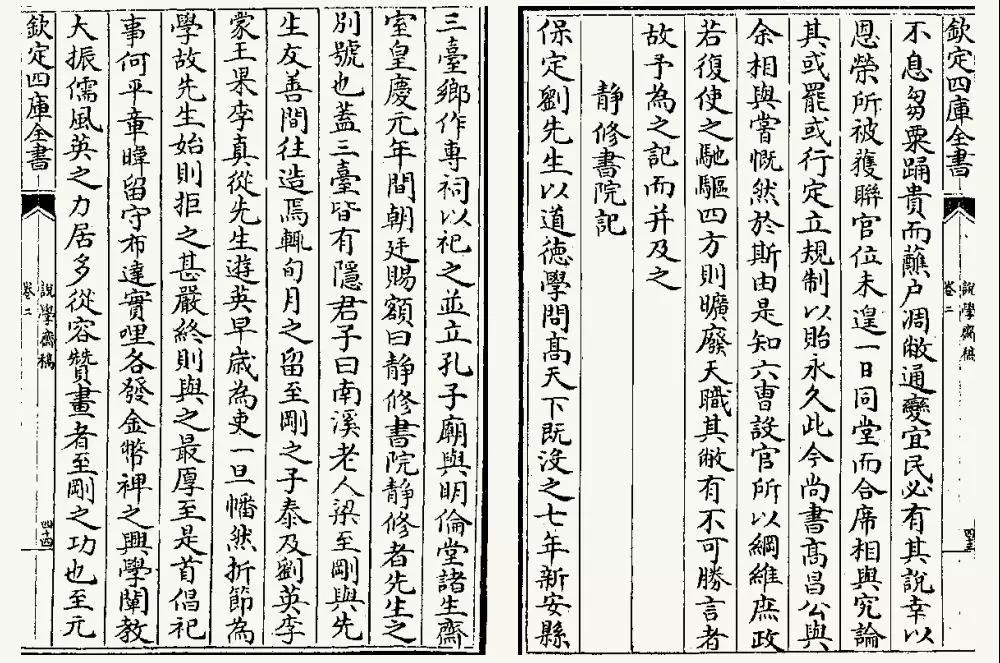 欽定四庫全書
說學齋稿
卷二
四三
不息芻粟踊貴而蘸户凋敝通變宜民必有其說幸以
恩榮所被獲聯官位未遑一日同堂而合席相與究論
其或罷或行定立規制以貽永久此今尚書高昌公與
余相與嘗慨然於斯由是知六曹設官所以綱維庶政
若復使之馳驅四方則曠廢天職其敝有不可勝言者
故予為之記而并及之
静修書院記
保定劉先生以道德學問髙天下既沒之七年新安縣
三臺鄉作專祠以祀之並立孔子廟與明倫堂諸生齋
室皇慶元年間朝廷賜額曰静修書院静修者先生之
別號也蓋三臺皆有隱君子曰南溪老人梁至剛與先
生友善間往造焉輒旬月之留至剛之子泰及劉英李
蒙王果李真從先生遊英早歲為吏一旦幡然折節為
學故先生始則拒之甚嚴終則與之最厚至是首倡祀
事何平章暐留守布達實哩各發金幣禆之興學闡教
大振儒風英之力居多從容贊畫者至剛之功也至元
欽定四庫全書
說學齋稿
卷二
四四